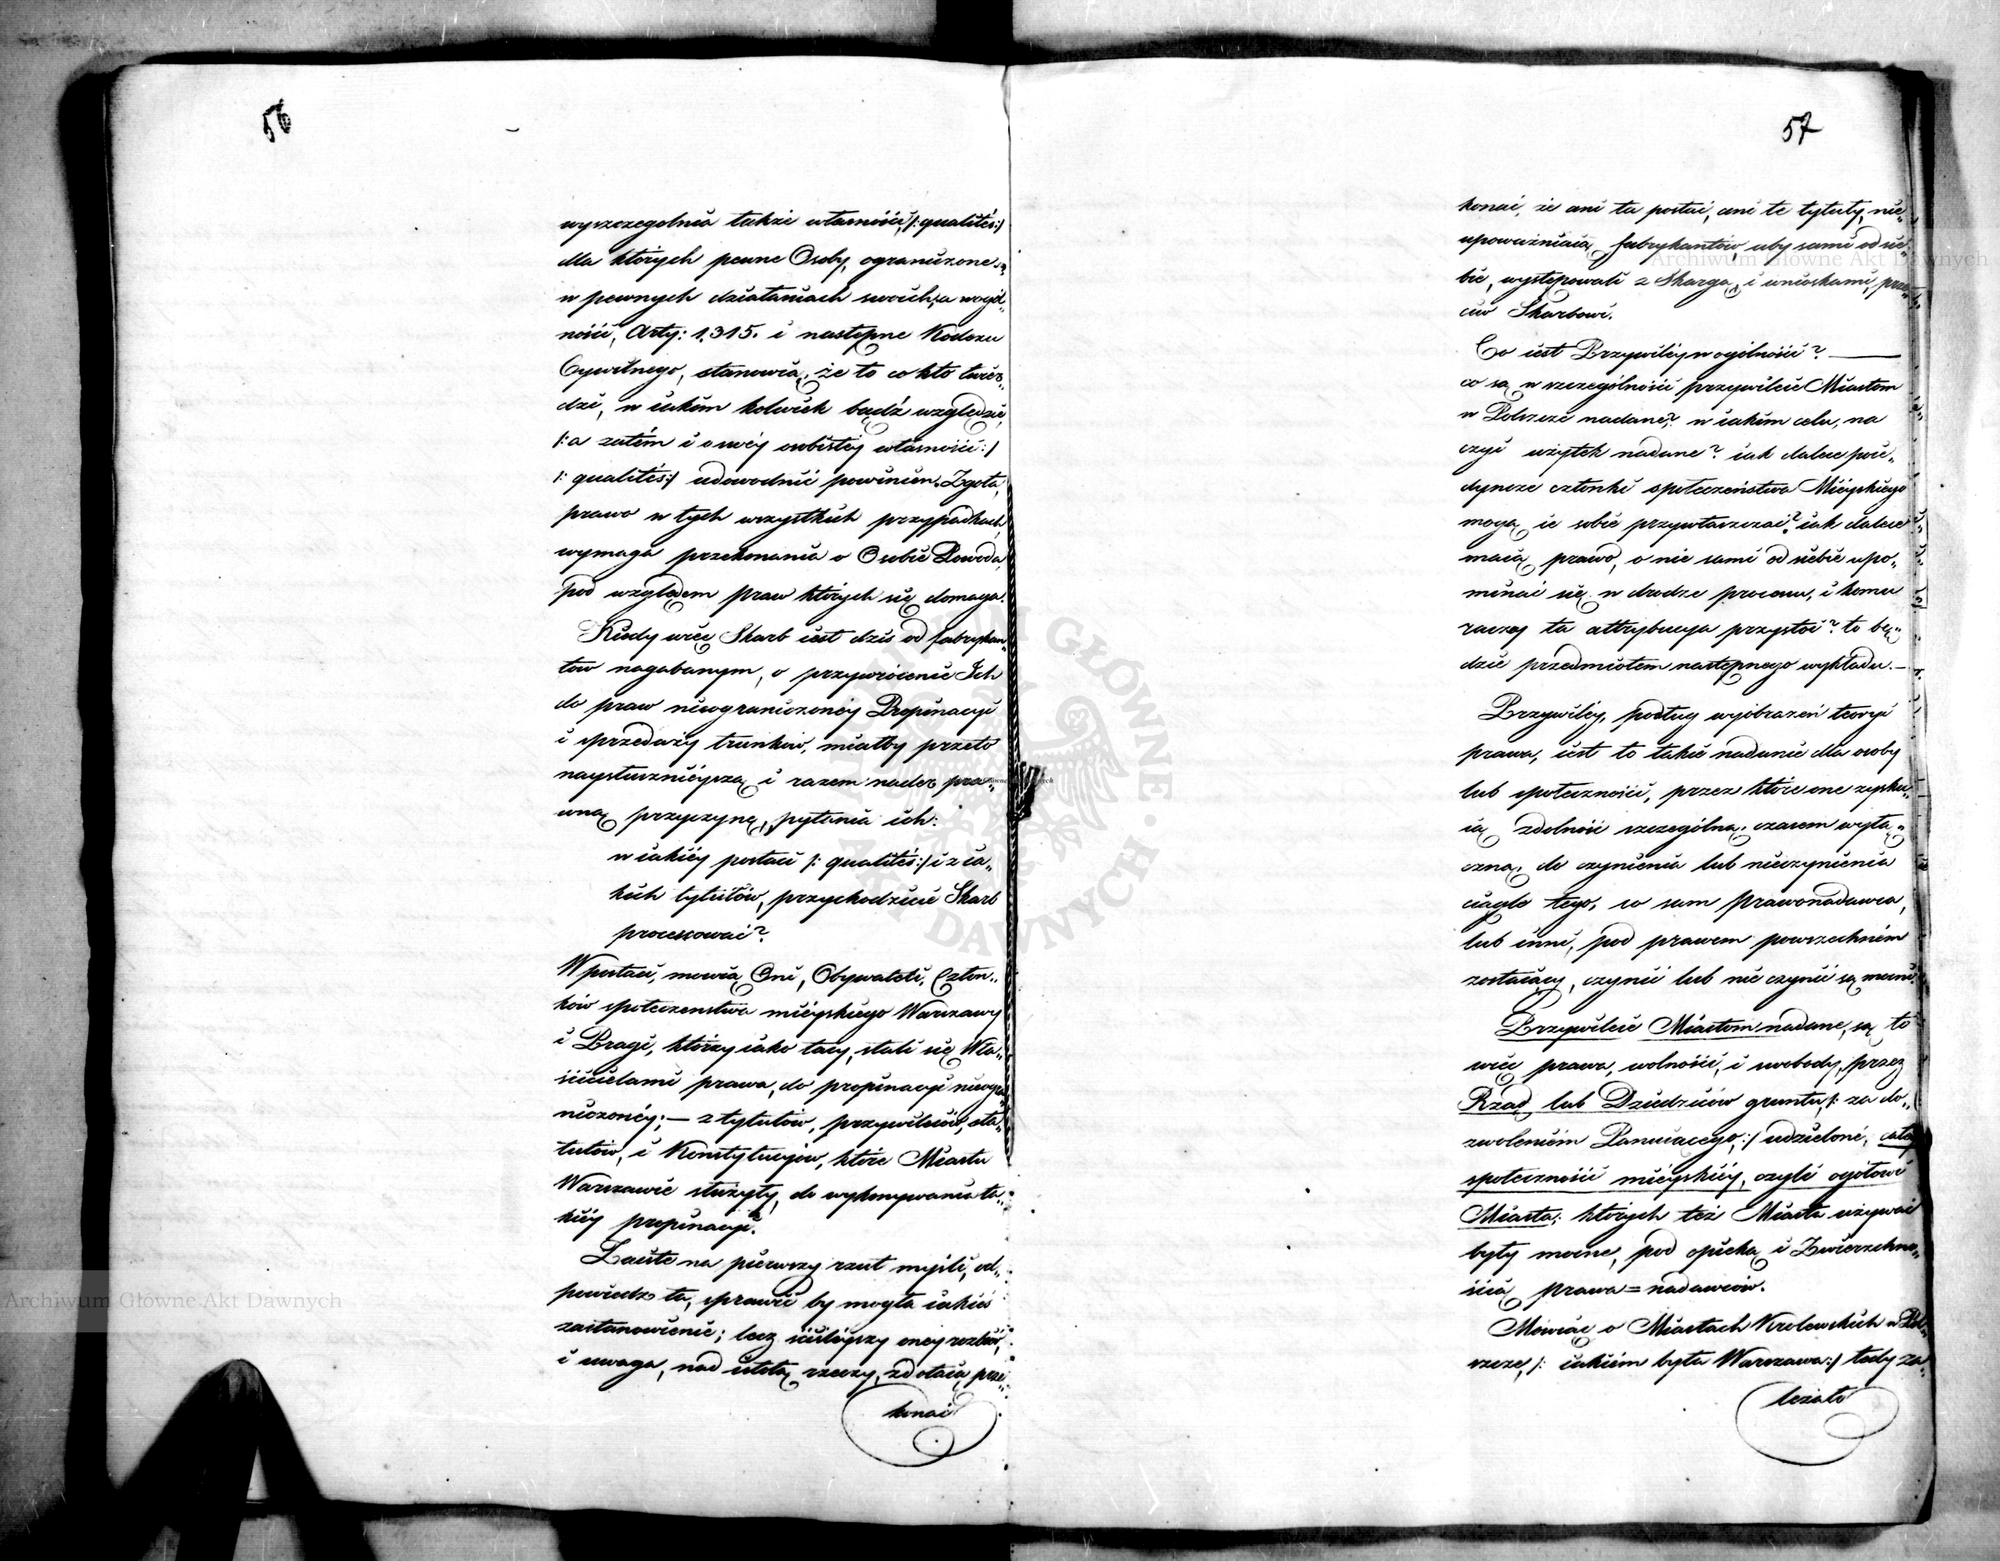 56
wyszczegolnia takie własności, /: qualités :/
dla których pewne Osoby, ograniczone są
w pewnych działaniach swoich, a wogól„
ności, Arty: 1,315. i następne Kodexu
Cywilnego, stanowią, że to co kto twier„
dzi, w iakim kolwiek bądź względzie,
/: a zatém i o swéy osobistéy własności :/
/: qualités :/ udowodnić powinien. Zgoła,
prawo w tych wszystkich przypadkach,
wymaga przekonania o Osobie Powoda,
pod względem praw których się domaga.
Kiedy więc Skarb iest dziś od fabrykan„
tów nagabanym, o przywrócenie Ich
do praw nieograniczonéy Propinacyi
i sprzedaży trunków, miałby przeto
naysłusznieyszą i razem nader pra„
wną przyczynę, pytania ich:
w iakiéy postaci /: qualités :/ i z ia„
kich tytułów, przychodzicie Skarb
processować?
W postaci, mówią Oni, Obywateli, Człon„
ków społeczenstwa mieyskiego Warszawy
i Pragi, którzy iako tacy, stali się Wła„
ścicielami prawa, do propinacyi nieogra„
niczonéy; — z tytułów, przywileiów, sta„
tutów, i Konstytucyiów, które Miastu
Warszawie służyły, do wykonywania ta„
kiéy propinacyi.
Zaiste na pierwszy rzut myśli, od„
powiedź ta, sprawić by mogła iakieś
zastanowienie; lecz ściśleyszy onéy rozbiór,
i uwaga, nad istotą rzeczy, zdołaią prze„
konać
57
konać, że ani ta postać, ani te tytuły, nie„
upoważniaią fabrykantów, aby sami od sie„
bie, występowali z Skargą, i wnioskami, prze„
ciw Skarbowi.
Co iest Przywiléy w ogólności? —
co są w szczególności przywileie Miastom
w Polszcze nadane? w iakim celu, na
czyi użytek nadane? iak dalece poie„
dyncze członki społeczeństwa Mieyskiego
mogą ie sobie przywłaszczać? iak dalece
maią prawo, o nie sami od siebie upo„
minać się w drodze processu, i komu
raczey ta attrybucya przystoi? to bę„
dzie przedmiotem następnego wykładu. —
Przywiléy, podług wyobrażeń teoryi
prawa, iest to takie nadanie dla osoby
lub społeczności, przez które one zysku„
ią zdolność szczególną, czasem wyłą„
czną, do czynienia lub nieczynienia
ciągle tego, co sam prawonadawca,
lub inni, pod prawem powszechném
zostaiący, czynić lub nie czynić są mocni.
Przywileie Miastom nadane, są to
więc prawa, wolności, i swobody, przez
Rząd lub Dziedziców gruntu, /: za do„
zwoleniem Panuiącego, :/ udzielone, całéy
społeczności mieyskiéy, czyli ogółowi
Miasta; których też Miasta używać
były mocne, pod opieką i Zwierzchno„
ścią prawa=nadawców.
Mówiąc o Miastach Krolewskich w Pol„
szcze, /: iakiém była Warszawa :/ tedy za„
leżało
Archiwum Główne Akt Dawnych